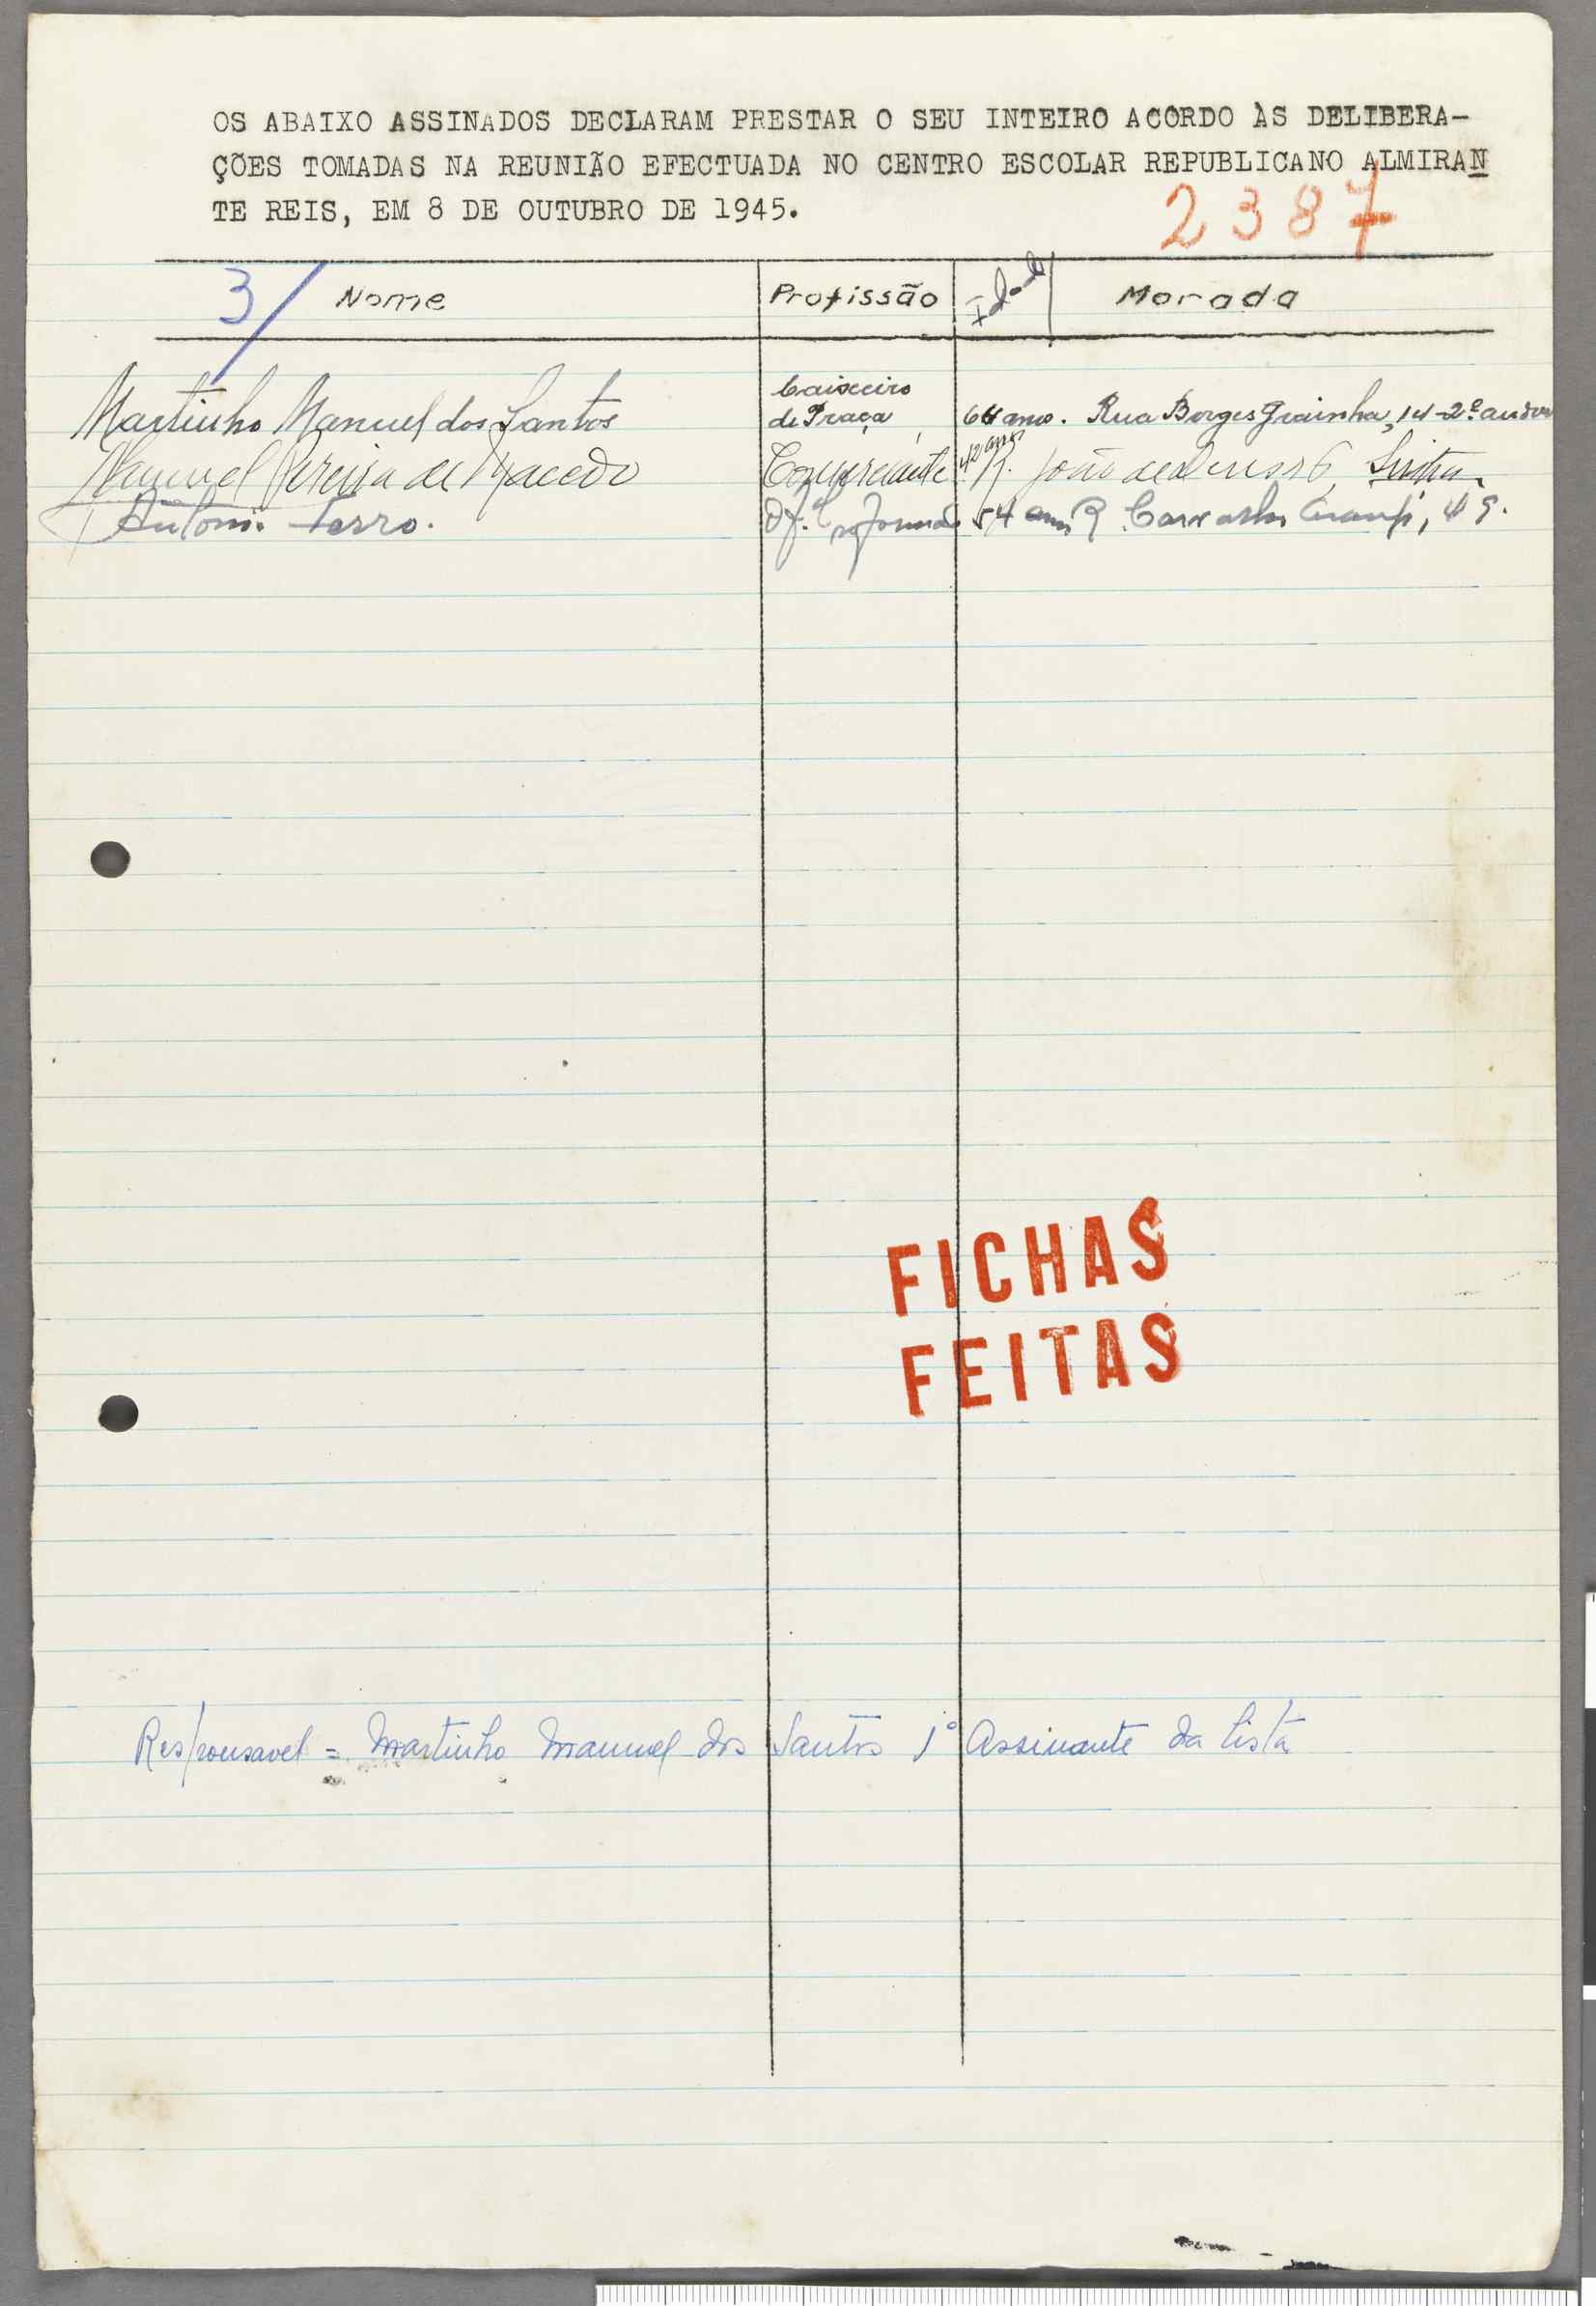 OS ABAIXO ASSINADOS DECLARAM PRESTAR O SEU INTEIRO ACORDO ÀS DELIBERA-
ÇÕES TOMADAS NA REUNIÃO EFECTUADA NO CENTRO ESCOLAR REPUBLICANO ALMIRAN
TE REIS, EM 8 DE OUTUBRO DE 1945.
2387
3/ Nome Profissão Idade Morada
Martinho Manuel dos Santos Caixeiro de Praça 64 anos. Rua Borges Grainha, 14-2º andar
Manuel Pereira de Macedo Comerciante 42 anos R. João de Deus 6, Sintra
António Serro. Of. 54 anos R
FICHAS
FEITAS
Responsavel = Martinho Manuel dos Santos 1º Assinante da Lista